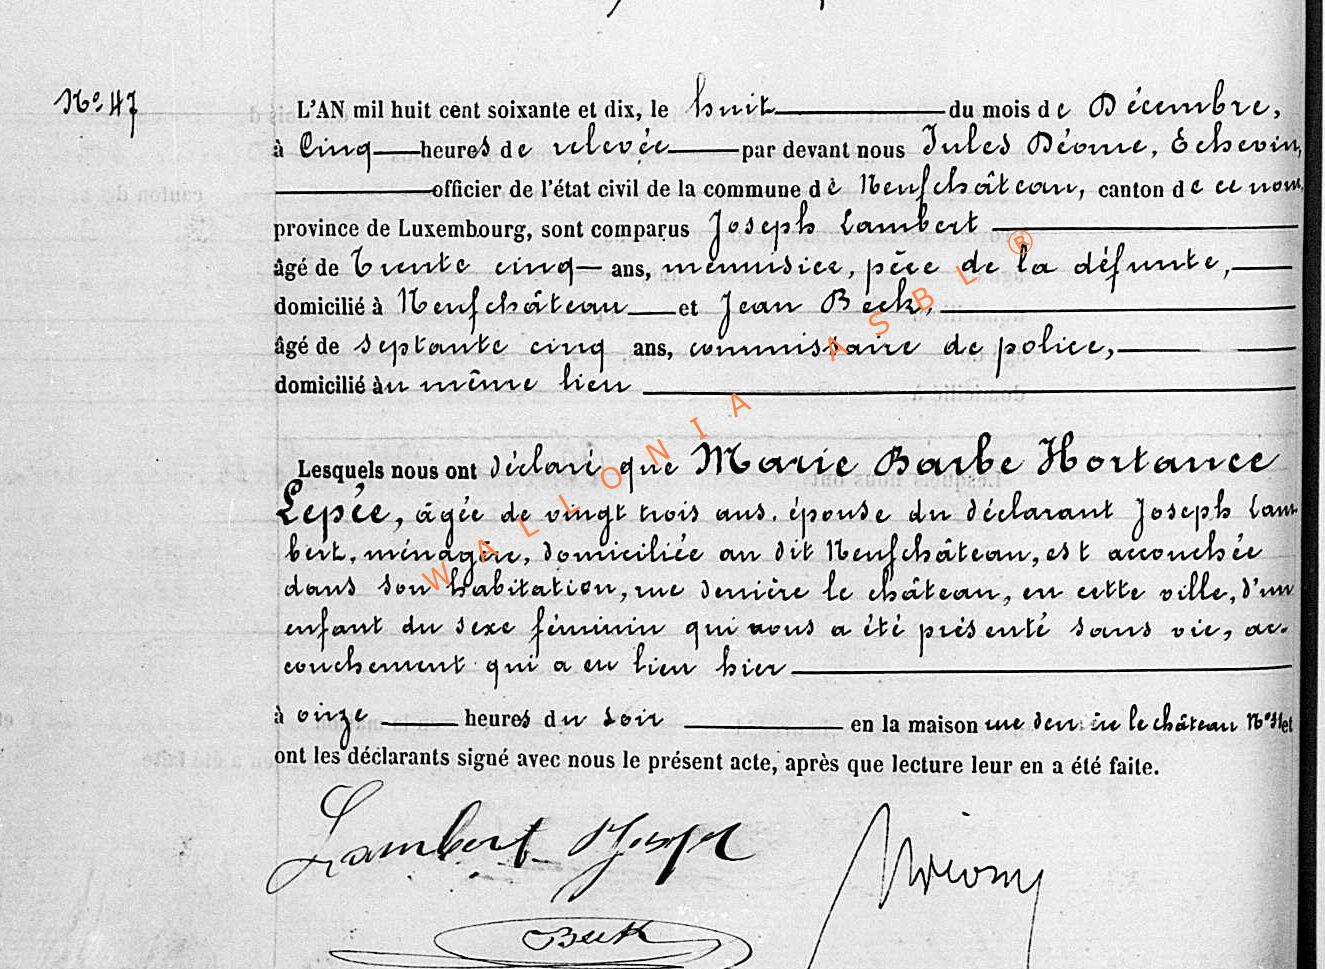 No 47
L'AN mil huit cent soixante et dix, le huit du mois de Décembre,
à Cinq heures de relevée par devant nous Jules Déome, Echevin,
officier de l'état civil de la commune de Neufchâteau, canton de ce nom,
province de Luxembourg, sont comparus Joseph Lambert
âgé de Trente cinq ans, menuisier, père de la défunte,
domicilié à Neufchâteau et Jean Beck,
âgé de septante cinq ans, commissaire de police,
domicilié àu même lieu
Lesquels nous ont déclaré que Marie Barbe Hortance
Lepée, âgée de vingt trois ans, épouse du déclarant Joseph Lam
bert, ménagère, domiciliée au dit Neufchâteau, est accouchée
dans son habitation, rue derrière le château, en cette ville, d'un
enfant du sexe féminin qui nous a été présenté sans vie, ac-
couchement qui a eu lieu hier
à onze heures du soir en la maison rue derrière le château No et
ont les déclarants signé avec nous le présent acte, après que lecture leur en a été faite.
Lambert Joseph
Beck
WALLONIA ASBL ®